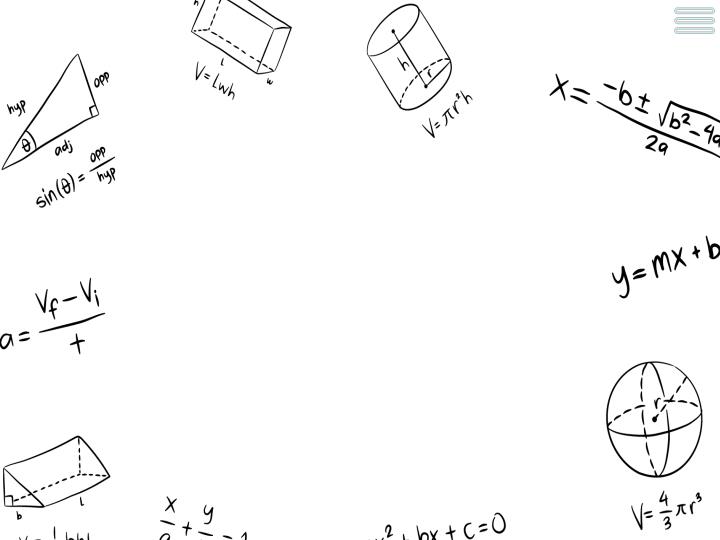 h
l
w
V=lwh
h
r
V=πr²h
hyp
opp
θ
adj
sin(θ)=opp/hyp
x=-b±√b²-4a
2a
y=mx+b
a=Vf-Vi/t
r
V=4/3πr³
b
l
x/a+y/
=1
x²+bx+c=0